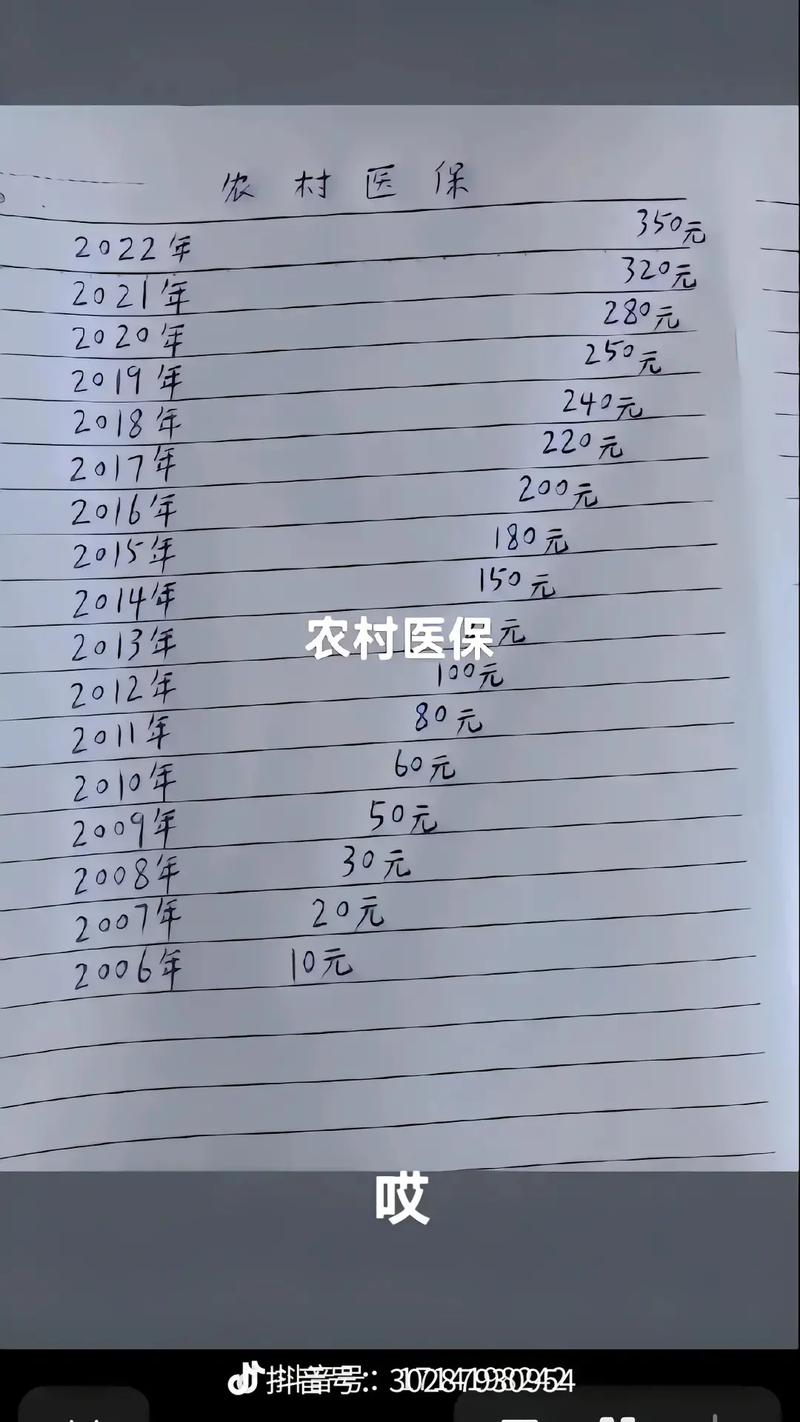 农村医保
2022年 350元
2021年 320元
2020年 280元
2019年 250元
2018年 240元
2017年 220元
2016年 200元
2015年 180元
2014年 150元
2013年 元
农村医保
2012年 100元
2011年 80元
2010年 60元
2009年 50元
2008年 30元
2007年 20元
2006年 10元
哎
抖音号：